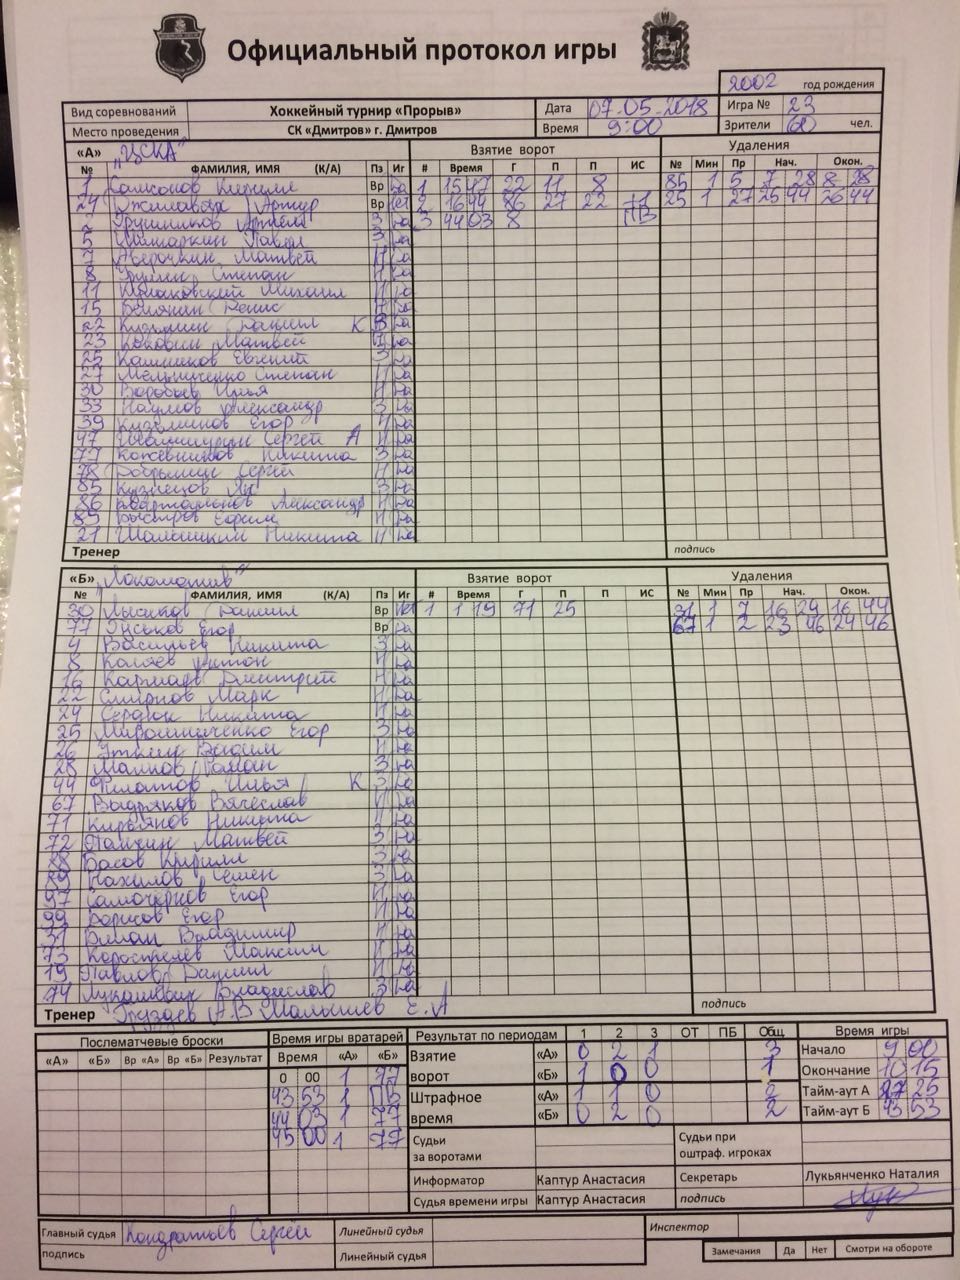 Официальный протокол игры
2002 год рождения
Вид соревнований Хоккейный турнир «Прорыв» Дата 07.05.2018 Игра № 23
Место проведения СК «Дмитров» г. Дмитров Время 9:00 Зрители 60 чел.
«А» "ЦСКА" Взятие ворот Удаления
№ ФАМИЛИЯ, ИМЯ (К/А) Пз Иг # Время Г П П ИС № Мин Пр Нач. Окон.
1 Самсонов Кирилл Вр Да 1 15 47 22 11 8 85 1 5 7 28 8 28
24 Артур Вр Нет 2 16 44 86 27 22 +1 25 1 27 25 44 26 44
2 Грушников Артем З Да 3 44 03 8 ПВ
5 Павел З Да
7 Аверочкин Матвей Н Да
8 Степан Н Да
11 Михаил Н Да
15 Денис Н Да
22 Кузьмин Даниил К Да
23 Коковин Матвей Н Да
25 Калашников Евгений З Да
27 Мельниченко Степан Н Да
30 Воробьев Илья Н Да
33 Наумов Александр З Да
39 Кузьминов Егор Н Да
47 Сергей А Н Да
77 Кожевников Никита З Да
78 Добрынин Сергей Н Да
85 Кузнецов Ян З Да
86 Александр Н Да
89 Быстров Ефим Н Да
21 Шалашкин Никита Н Да
Тренер подпись
«Б» "Локомотив" Взятие ворот Удаления
№ ФАМИЛИЯ, ИМЯ (К/А) Пз Иг # Время Г П П ИС № Мин Пр Нач. Окон.
30 Лысиков Даниил Вр Нет 1 1 19 71 25 31 1 7 16 24 16 44
77 Гуськов Егор Вр Да 67 1 2 23 46 24 46
4 Васильев Никита З Да
8 Каляев Антон Н Да
16 Кармаев Дмитрий Н Да
22 Смирнов Марк Н Да
24 Сердюк Никита Н Да
25 Мирошниченко Егор З Да
26 Уткин Вадим Н Да
28 Маинов Роман З Да
44 Филатов Илья К З Да
67 Выдряков Вячеслав Н Да
71 Кирьянов Никита Н Да
72 Матвей З Да
88 Басов Кирилл З Да
89 Нахилов Семен З Да
97 Самочернов Егор Н Да
99 Борисов Егор Н Да
31 Билан Владимир Н Да
73 Коростелев Максим Н Да
19 Павлов Даниил Н Да
74 Лукашевич Владислав З Да
Тренер Груздев А.В Малышев Е.А подпись
Послематчевые броски Время игры вратарей Результат по периодам 1 2 3 ОТ ПБ Общ Время игры
«А» «Б» Вр «А» Вр «Б» Результат Время «А» «Б»
Взятие ворот «А» 0 2 1 3 Начало 9 00
0 00 1 77 «Б» 1 0 0 1 Окончание 10 15
43 53 1 ПВ Штрафное время «А» 1 1 0 2 Тайм-аут А 27 25
44 03 1 77 «Б» 0 2 0 2 Тайм-аут Б 43 53
45 00 1 77
Судьи за воротами Судьи при оштраф. игроках
Информатор Каптур Анастасия Секретарь Лукьянченко Наталия
Судья времени игры Каптур Анастасия подпись
Главный судья Кондратьев Сергей Линейный судья Инспектор
подпись Линейный судья Замечания Да Нет Смотри на обороте